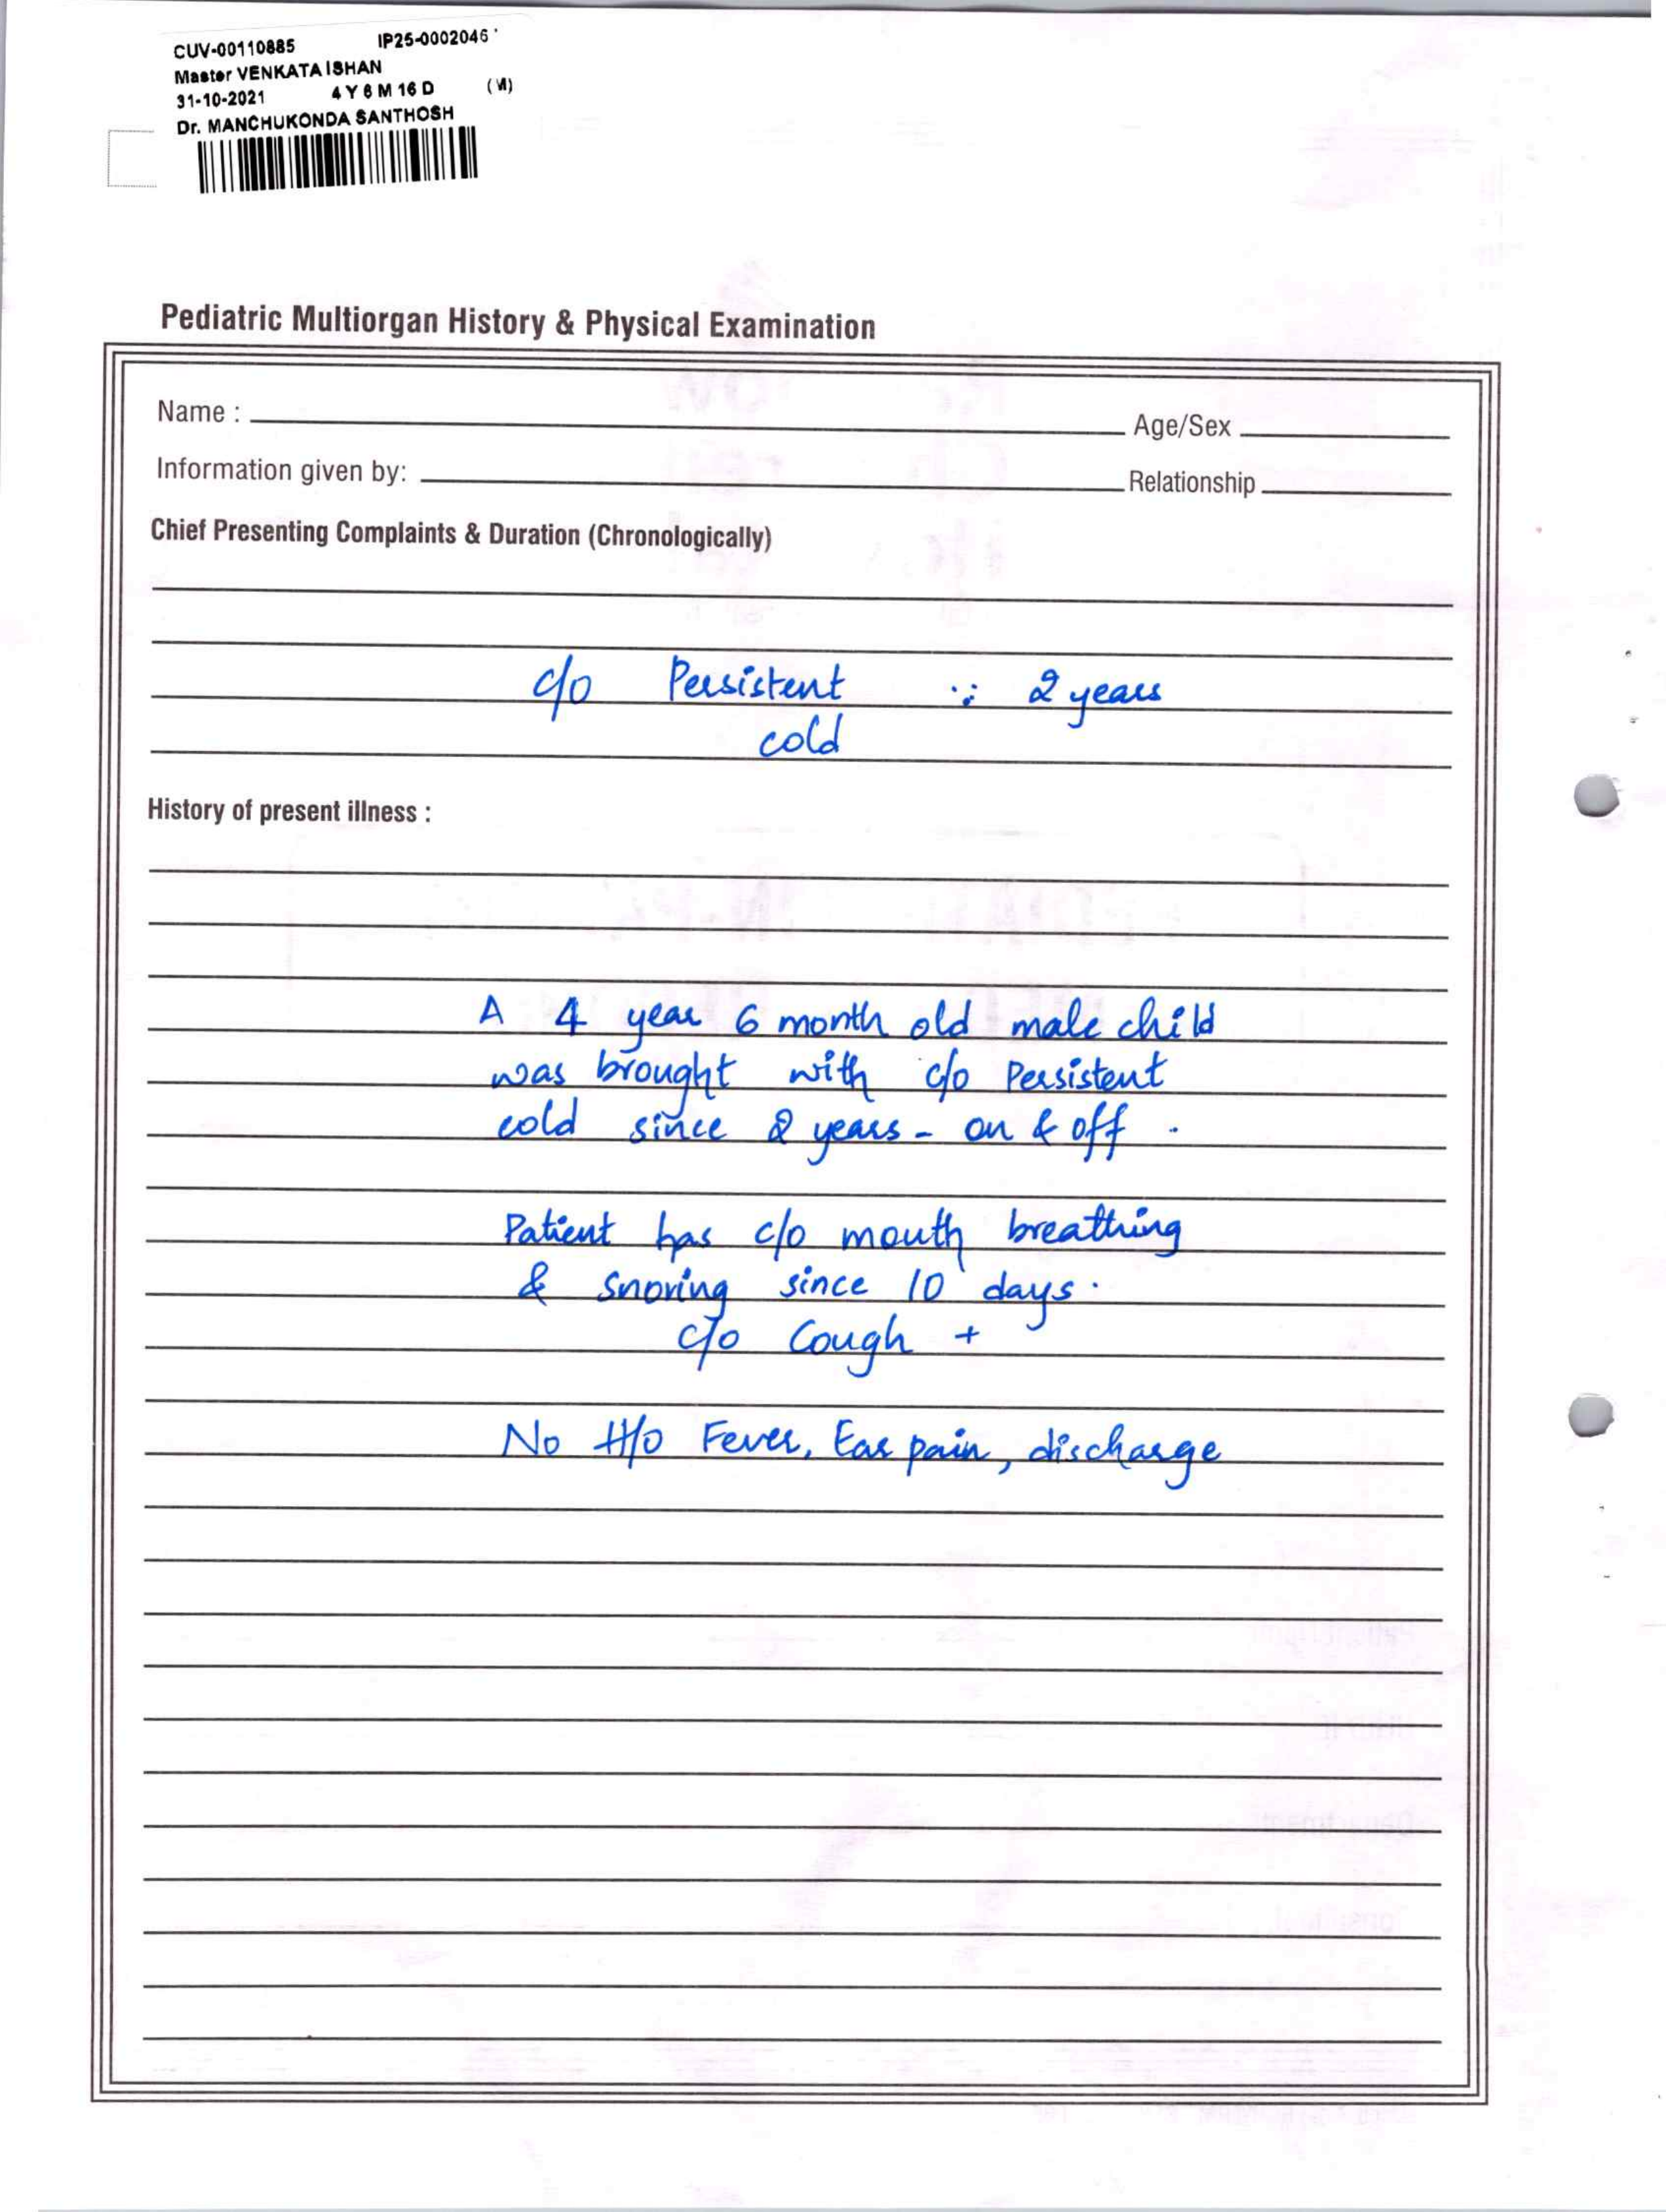 CUV-00110885 IP25-0002046
Master VENKATA ISHAN
31-10-2021 4 Y 6 M 16 D (M)
Dr. MANCHUKONDA SANTHOSH
Pediatric Multiorgan History & Physical Examination
Name : Age/Sex
Information given by: Relationship
Chief Presenting Complaints & Duration (Chronologically)
c/o Persistent : 2 years
cold
History of present illness :
A 4 year 6 month old male child
was brought with c/o Persistent
cold since 2 years - on & off .
Patient has c/o mouth breathing
& snoring since 10 days .
c/o Cough +
No H/o Fever, Ear pain, discharge